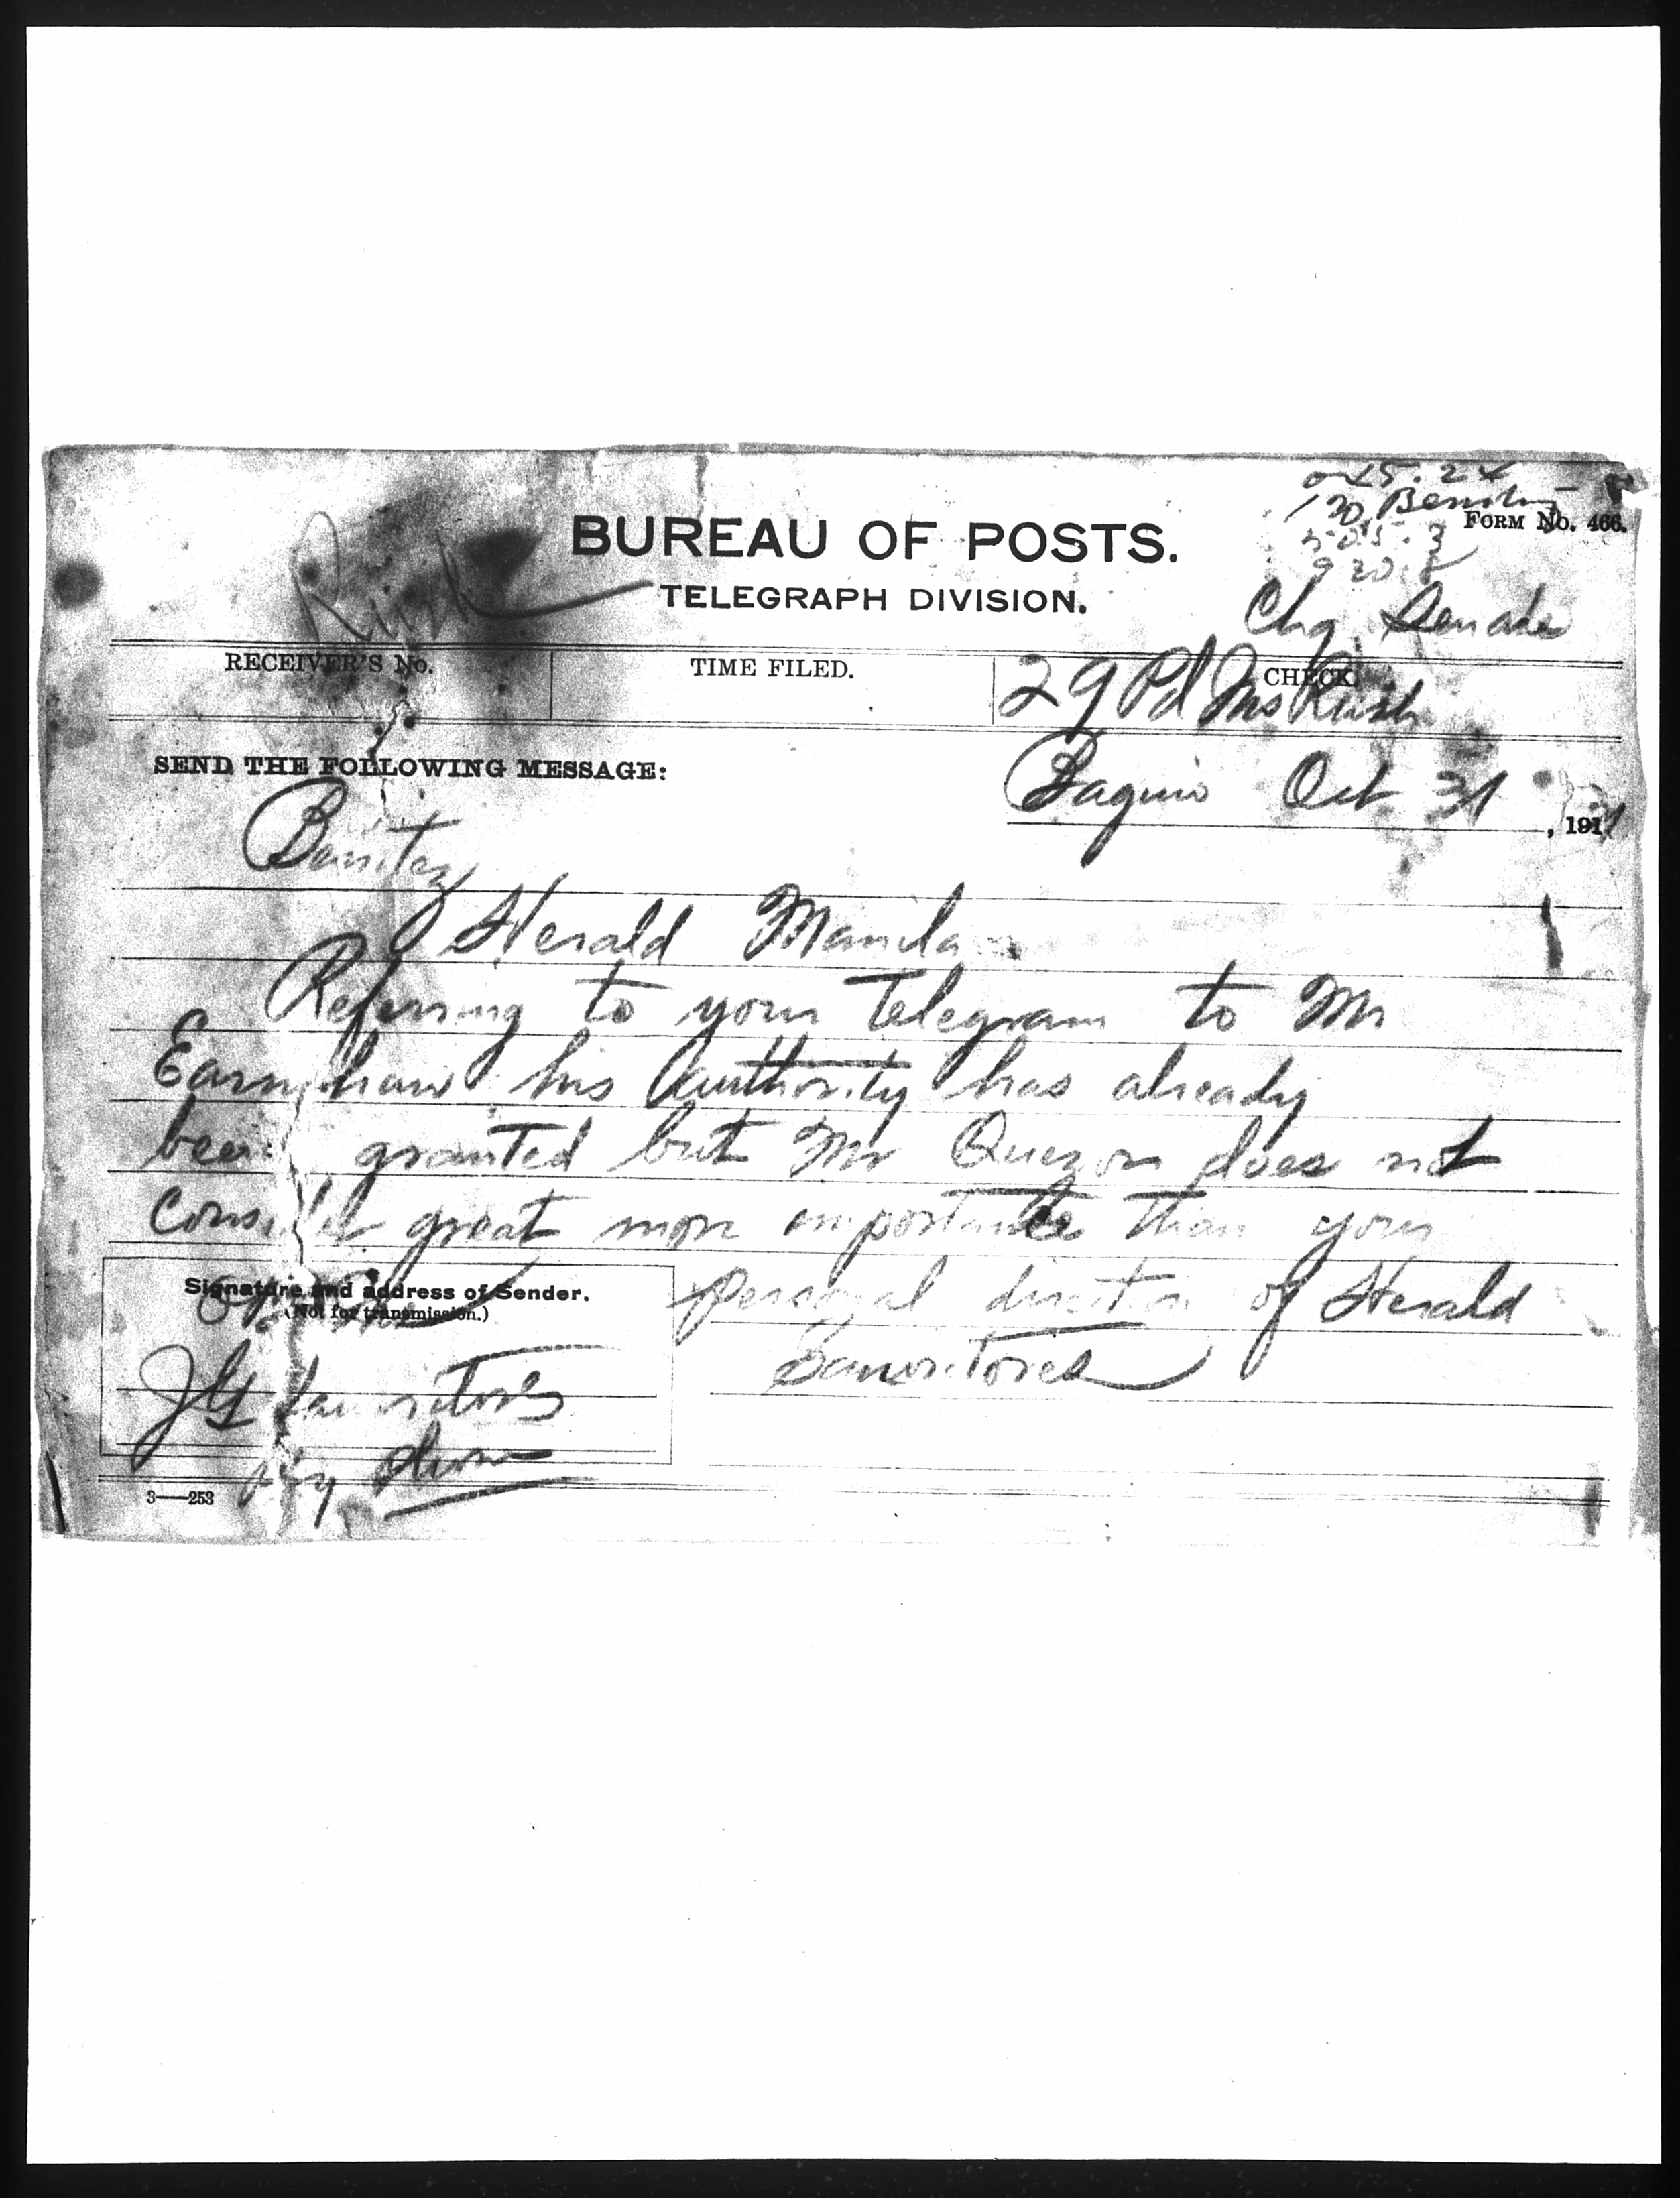 BUREAU OF POSTS.
TELEGRAPH DIVISION.
FORM No. 466.
Rush
Chg. Senate
RECEIVER'S No.
TIME FILED.
CHECK
29 Pd Ms Rush
SEND THE FOLLOWING MESSAGE:
Baguio Oct 31, 191
Benitez
Herald Manila
Referring to your telegram to Mr
Earnshaw his authority has already
been granted but Mr Quezon does not
Consider great more importance than your
personal direction of Herald
Sanvitores
Signature and address of Sender.
(Not for transmission.)
JG Sanvitores
3—253